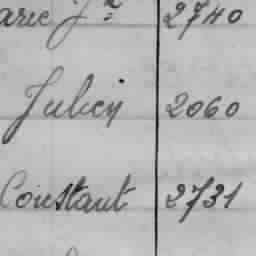 arie Jne 2740
Julien 2060
Constant 2731